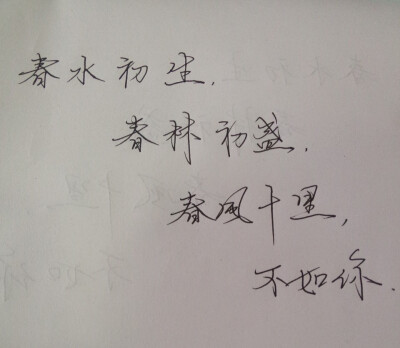 春水初生.
春林初盛.
春风十里,
不如你.